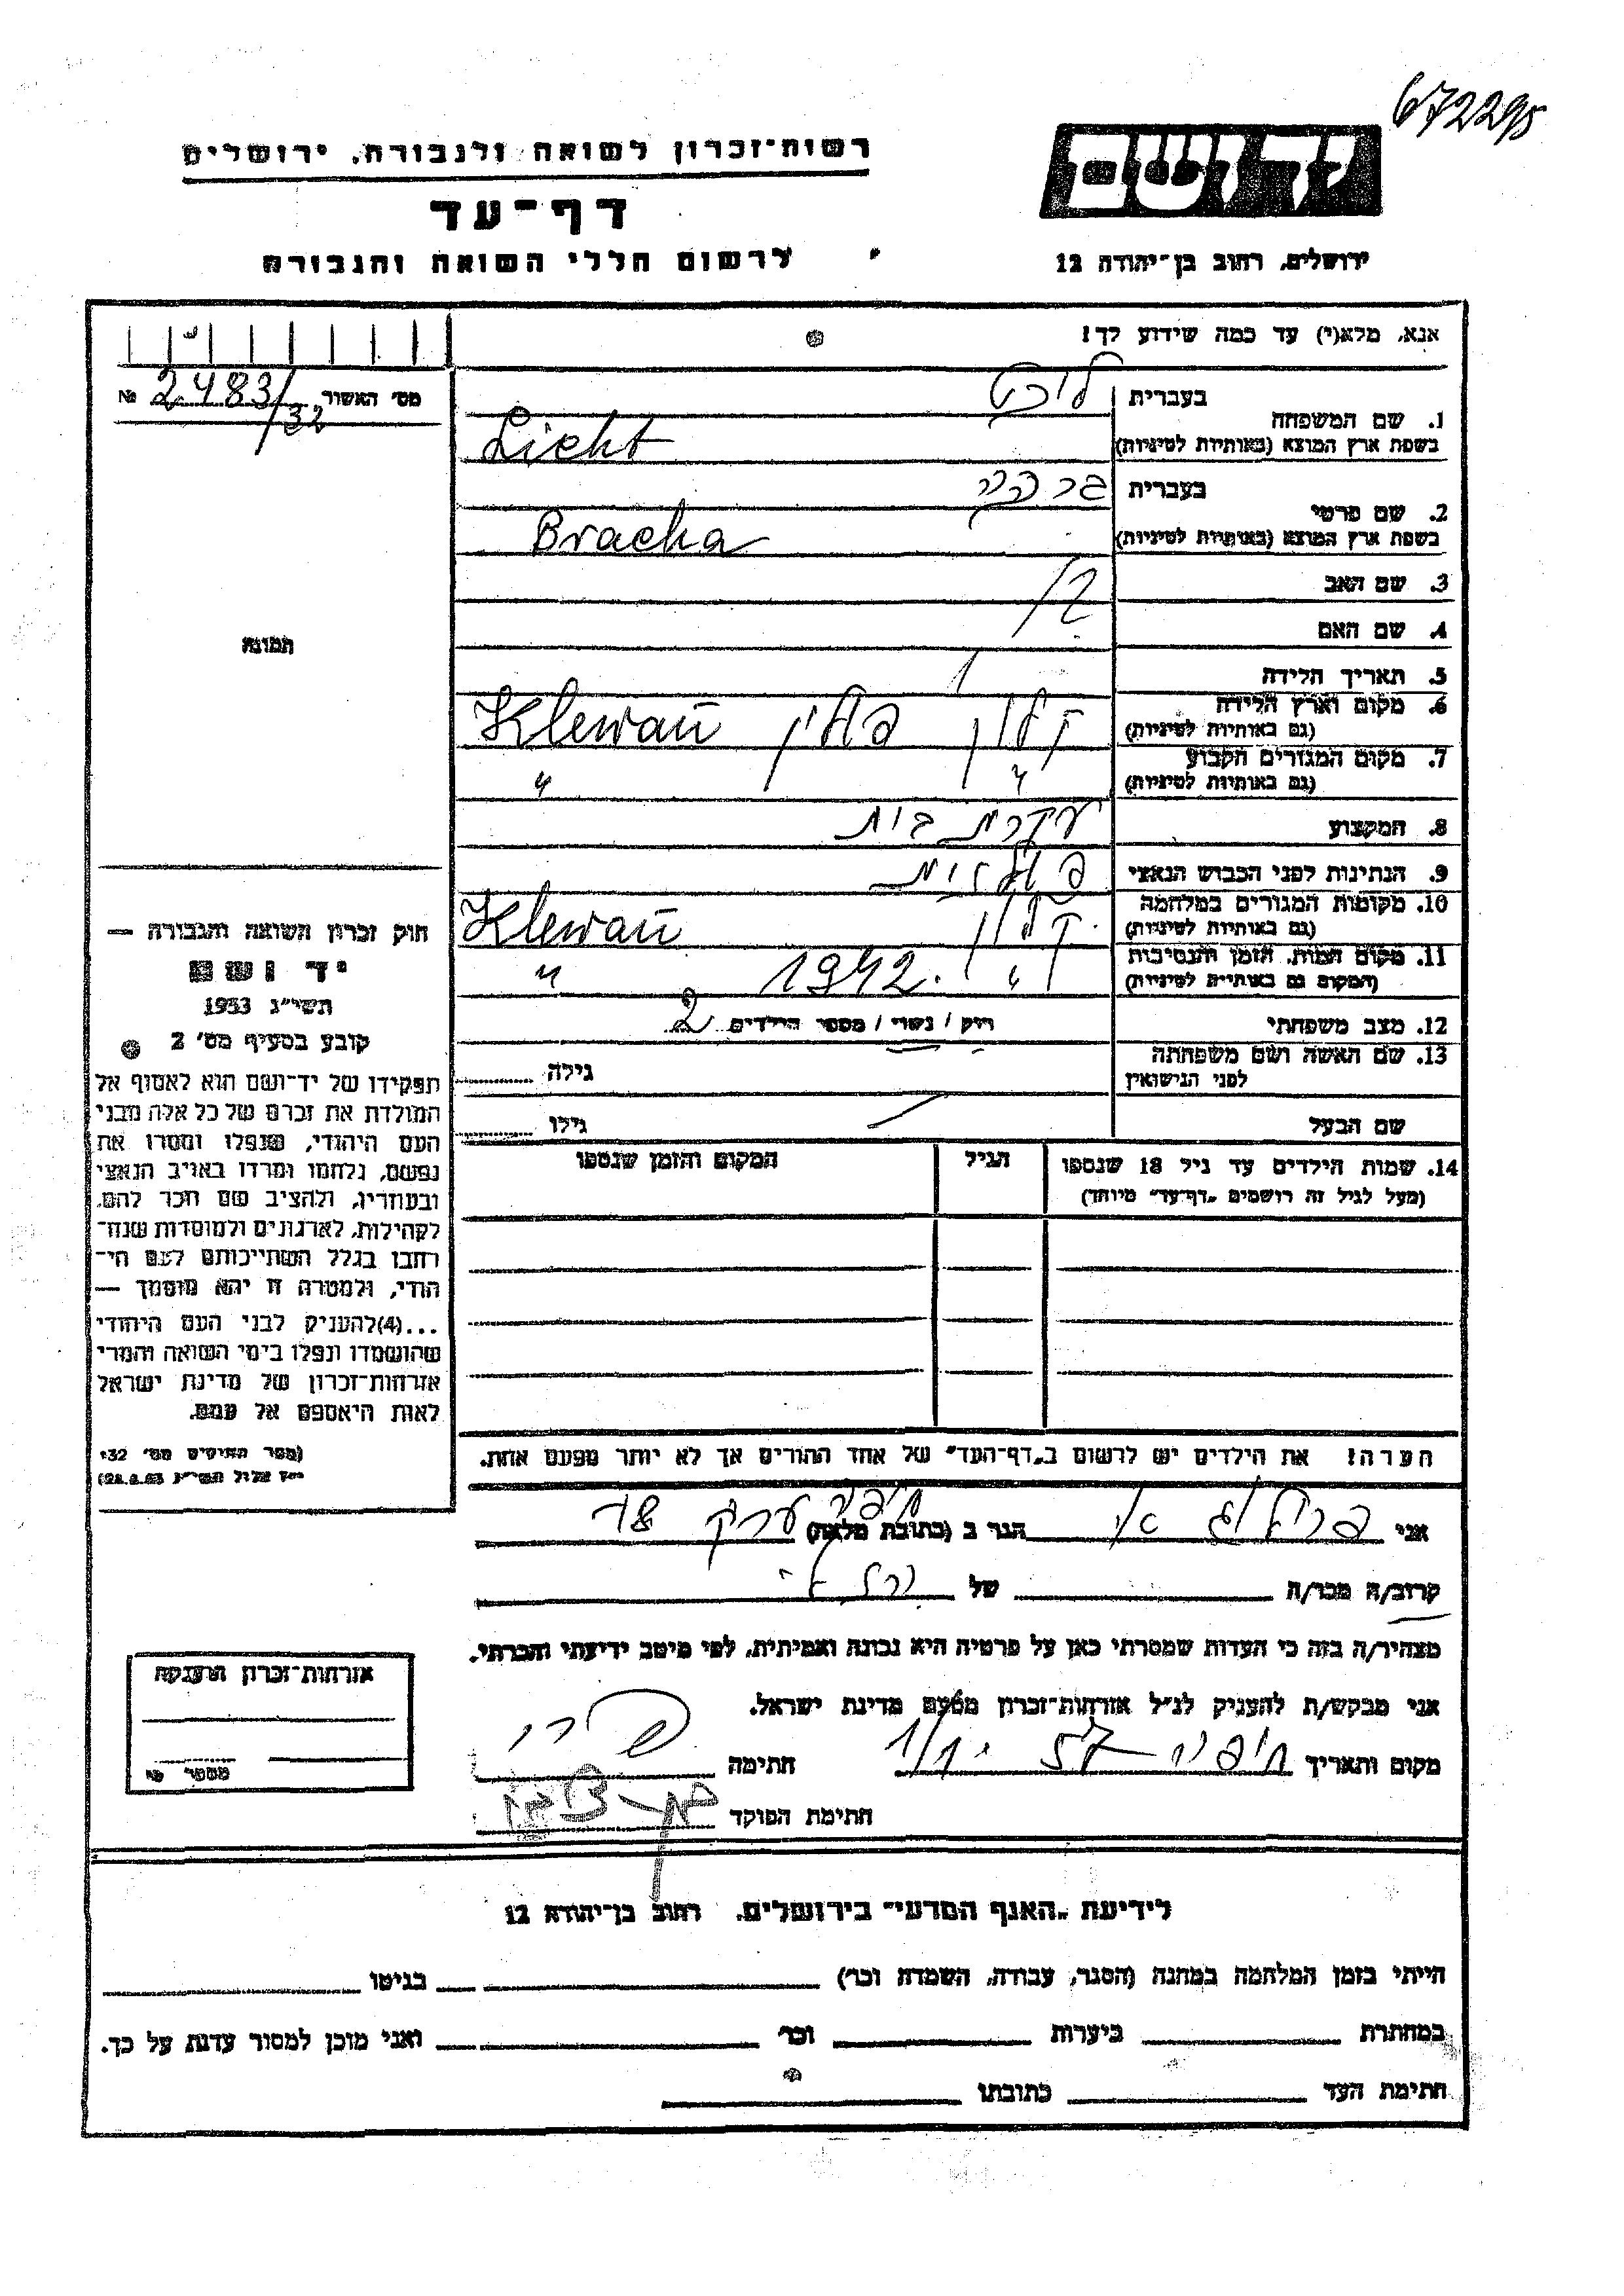 672295
רשות־זכרון לשואה ולגבורה, ירושלים
יד ושם
דף־עד
לרשום חללי השואה והגבורה
ירושלים, רחוב בן־יהודה 12
אנא, מלא(י) עד כמה שידוע לך!
מס׳ האשור 2483/32 №
בעברית
1. שם המשפחה
בשפת ארץ המוצא (באותיות לטיניות) Licht
בעברית ברכה
2. שם פרטי
בשפת ארץ המוצא (באותיות לטיניות) Bracha
3. שם האב
4. שם האם
תמונה
5. תאריך הלידה
6. מקום וארץ הלידה
(גם באותיות לטיניות) קלון פולין Klewań
7. מקום המגורים הקבוע
(גם באותיות לטיניות) " "
8. המקצוע עקרת בית
9. הנתינות לפני הכבוש הנאצי פולנית
10. מקומות המגורים במלחמה
(גם באותיות לטיניות) קלון Klewań
11. מקום המות, הזמן והנסיבות
(המקום גם באותיות לטיניות) " 1942. "
12. מצב משפחתי רווק / נשוי / מספר הילדים 2
13. שם האשה ושם משפחתה
לפני הנישואין גילה
שם הבעל גילו
14. שמות הילדים עד גיל 18 שנספו
(מעל לגיל זה רושמים „דף־עד" מיוחד)
הגיל
המקום והזמן שנספו
חוק זכרון השואה והגבורה —
יד ושם
תשי״ג 1953
קובע בסעיף מס׳ 2
תפקידו של יד־ושם הוא לאסוף אל
המולדת את זכרם של כל אלה מבני
העם היהודי, שנפלו ומסרו את
נפשם, נלחמו ומרדו באויב הנאצי
ובעוזריו, ולהציב שם וזכר להם,
לקהילות, לארגונים ולמוסדות שנח־
רבו בגלל השתייכותם לעם הי־
הודי, ולמטרה זו יהא מוסמך —
...(4)להעניק לבני העם היהודי
שהושמדו ונפלו בימי השואה והמרי
אזרחות־זכרון של מדינת ישראל
לאות היאספם אל עמם.
(ספר החוקים מס׳ 132
י״ז אלול תשי״ג 28.8.53)
הערה! את הילדים יש לרשום ב„דף־העד" של אחד ההורים אך לא יותר מפעם אחת.
אני
הגר ב (כתובת מלאה) חיפה
קרוב/ה מכר/ה של
מצהיר/ה בזה כי העדות שמסרתי כאן על פרטיה היא נכונה ואמיתית, לפי מיטב ידיעתי והכרתי.
אני מבקש/ת להעניק לנ״ל אזרחות־זכרון מטעם מדינת ישראל.
מקום ותאריך חיפה
חתימה
חתימת הפוקד
אזרחות־זכרון הוענקה
מספר
לידיעת „האגף המדעי" בירושלים, רחוב בן־יהודה 12
הייתי בזמן המלחמה במחנה (הסגר, עבודה, השמדה וכו׳) בגיטו
במחתרת ביערות וכו׳ ואני מוכן למסור עדות על כך.
חתימת העד כתובתו